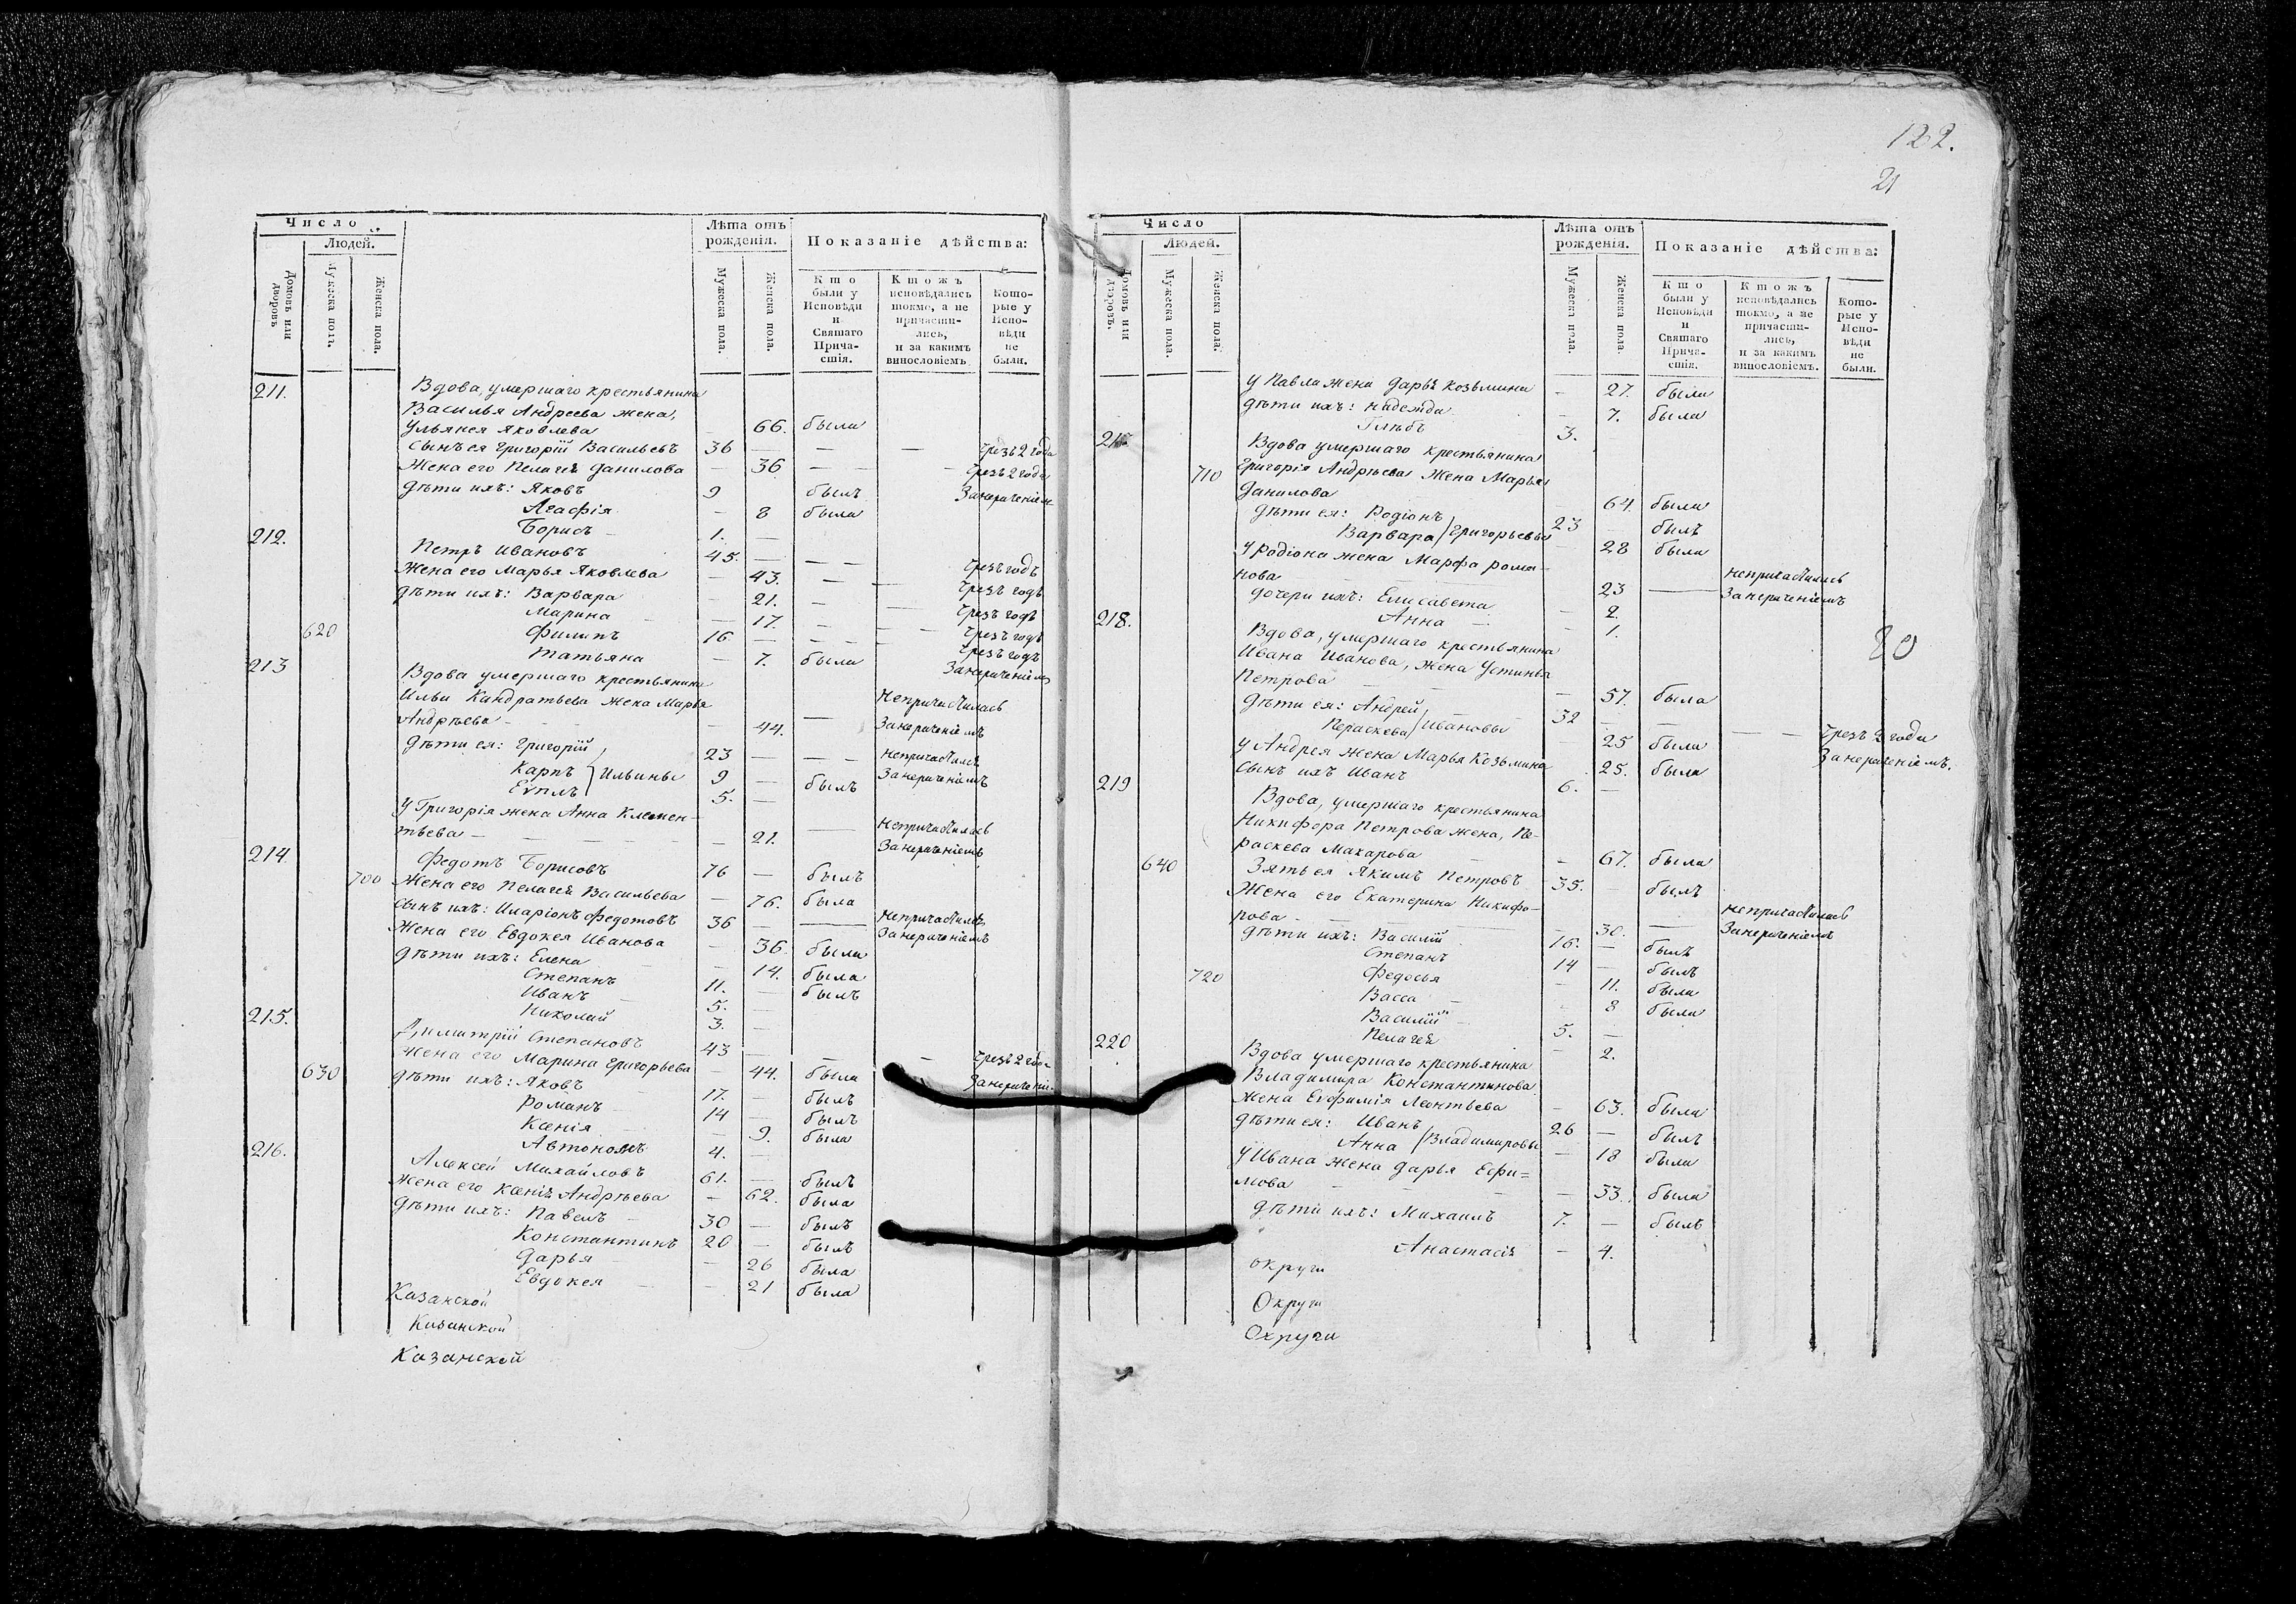 Число
Людей.
Домовъ или дворовъ
Мужеска полъ.
Женска пола.
Лѣта отъ рожденія.
Мужеска пола.
Женска пола.
Показаніе дѣйства:
Кто были у Исповѣди и Святаго Причастія.
Ктожъ исповѣдались токмо, а не причастились, и за какимъ винословіемъ
Которые у Исповѣди не были.
211. Вдова, умершаго крестьянина
Василья Андреева жена,
Ульянея Яковлева 66. была
сынъ ея Григорій Васильевъ 36 — — — Чрезъ 2 года
Жена его Пелагея Данилова — 36 — — Чрезъ 2 года
Дѣти ихъ: Яковъ 9 былъ Занераченіем
Агафія — 8 была
Борисъ 1. —
212. Петръ Ивановъ 45. — — — Чрезъ годъ
Жена его Марья Яковлева — 43. — — Чрезъ годъ
Дѣти ихъ: Варвара — 21. — — Чрезъ годъ
Марина — 17. — — Чрезъ годъ
620 Филипъ 16 — — — Чрезъ годъ
Татьяна — 7. была Занераченіемъ
213 Вдова умершаго крестьянина
Ильи Кандратьева жена Марья Непричастилась
Андрѣева — — 44. — Занераченіемъ
Дѣти ея: Григорій 23 — — Непричастился
Карпъ } Ильины 9 — былъ Занераченіемъ
Еѵплъ 5. —
У Григорія жена Анна Клемен- Непричастилась
тьева — — 21. — Занераченіемъ
214 Федотъ Борисовъ 76 — былъ
700 Жена его Пелагея Васильева — 76. была
сынъ ихъ: Иларіонъ Федотовъ 36 — — Непричастился
Жена его Евдокея Иванова — 36. была Занераченіемъ
Дѣти ихъ: Елена — 14. была
Степанъ 11. — былъ
Иванъ 5. —
Николай 3. —
215. Димитрій Степановъ 43 — — — Чрезъ 2 год
Жена его Марина Григорьева — 44. была Занерачені
630 Дѣти ихъ: Яковъ 17. — былъ
Романъ 14 — былъ
Ксенія — 9. была
Автономъ 4. —
216. Алексей Михайловъ 61. — былъ
Жена его Ксенія Андрѣева — 62. была
Дѣти ихъ: Павелъ 30 — былъ
Константинъ 20 — былъ
Дарья — 26 была
Евдокея — 21 была
Казанской
Казанской
Казанской
122.
21
Число
Людей.
Домовъ или дворовъ.
Мужеска пола.
Женска пола.
Лѣта отъ рожденія.
Мужеска пола.
Женска пола.
Показаніе дѣйства:
Кто были у Исповѣди и Святаго Причастія.
Ктожъ исповѣдались токмо, а не причастились, и за какимъ винословіемъ.
Которые у Исповѣди не были.
У Павла жена Дарья Козьмина — 27. была
Дѣти ихъ: Надежда — 7. была
Глѣбъ 3.
Вдова умершаго крестьянина
710 Григорія Андрѣева Жена Марья
Данилова — 64. была
Дѣти ея: Родіонъ 23 — былъ
Варвара } Григорьевы — 28 была
У Родіона жена Марфа Рома- Непричастилась
нова — 23 — Занераченіемъ
Дочери ихъ: Елисавета — 2.
Анна — 1.
80
218. Вдова, умершаго крестьянина
Ивана Иванова, жена Устинья
Петрова — 57. была
Дѣти ея: Андрей 32 — — — — Чрезъ 2 года
Пераскева } Ивановы — 25 была Занераченіемъ.
У Андрея жена Марья Козьмина 25. была
Сынъ ихъ Иванъ 6. —
219 Вдова, умершаго крестьянина
Никифора Петрова жена, Пе-
раскева Макарова — 67. была
640 Зять ея Якимъ Петровъ 35. — былъ
Жена его Екатерина Никифо- Непричастилась
рова — 30. — Занераченіемъ
Дѣти ихъ: Василій 16. — былъ
Степанъ 14 — былъ
720 Федосья — 11. была
Васса — 8 была
Василій 5. —
Пелагея — 2.
220 Вдова умершаго крестьянина
Владимира Константинова
Жена Евфимія Леонтьева — 63. была
Дѣти ея: Иванъ 26 — былъ
Анна } Владимировы — 18 была
У Ивана жена Дарья Ефи=
мова — 33. была
Дѣти ихъ: Михаилъ 7. — былъ
Анастасія — 4.
округи
Округи
Округи